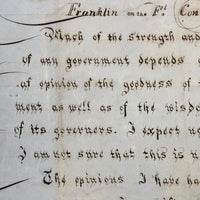 Franklin on the Fl. Con
Much of the strength and
of any government depends o
al opinion of the goodness of t
ment as well as of the wisdo
of its governers. I expect no
I am not sure that this is n
The opinions I have ha